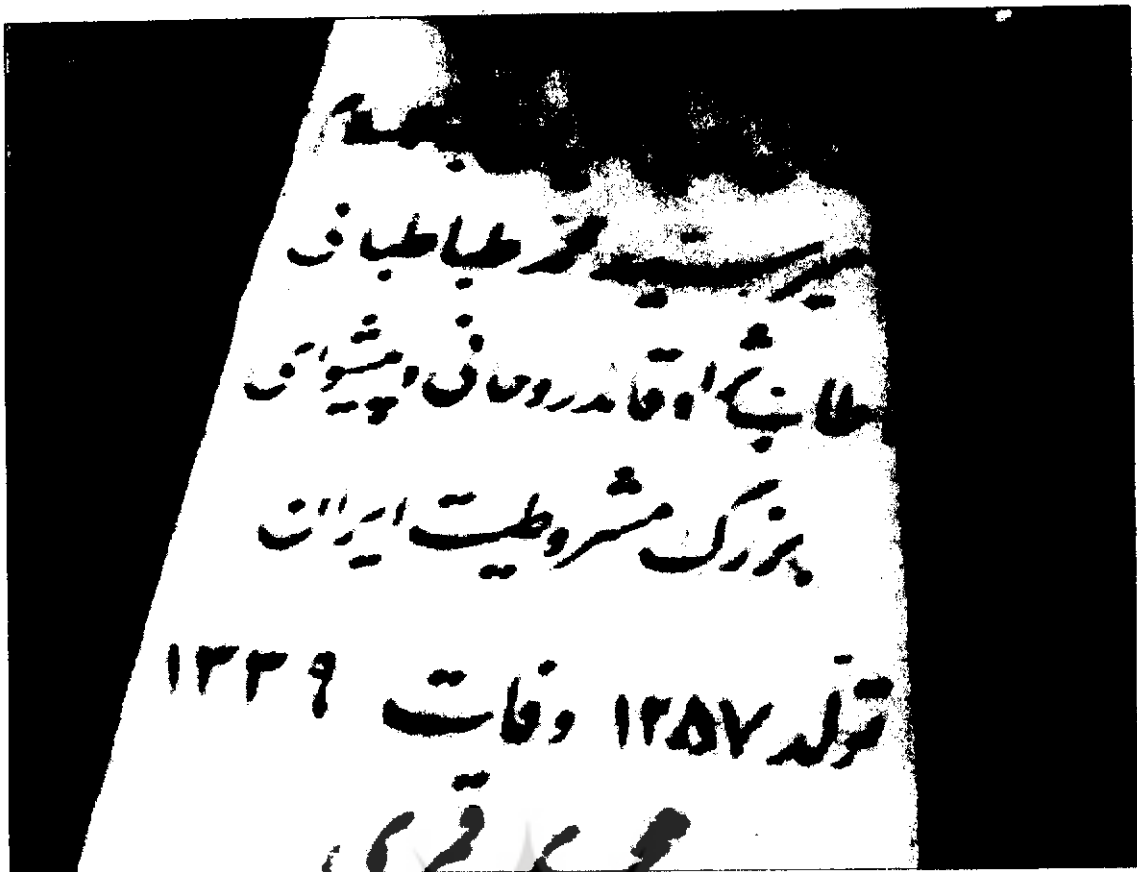 میر سید محمد طباطبائی
طاب ثراه قائد روحانی و پیشوای
بزرگ مشروطیت ایران
تولد ۱۲۵۷ وفات ۱۳۳۹
هجری قمری